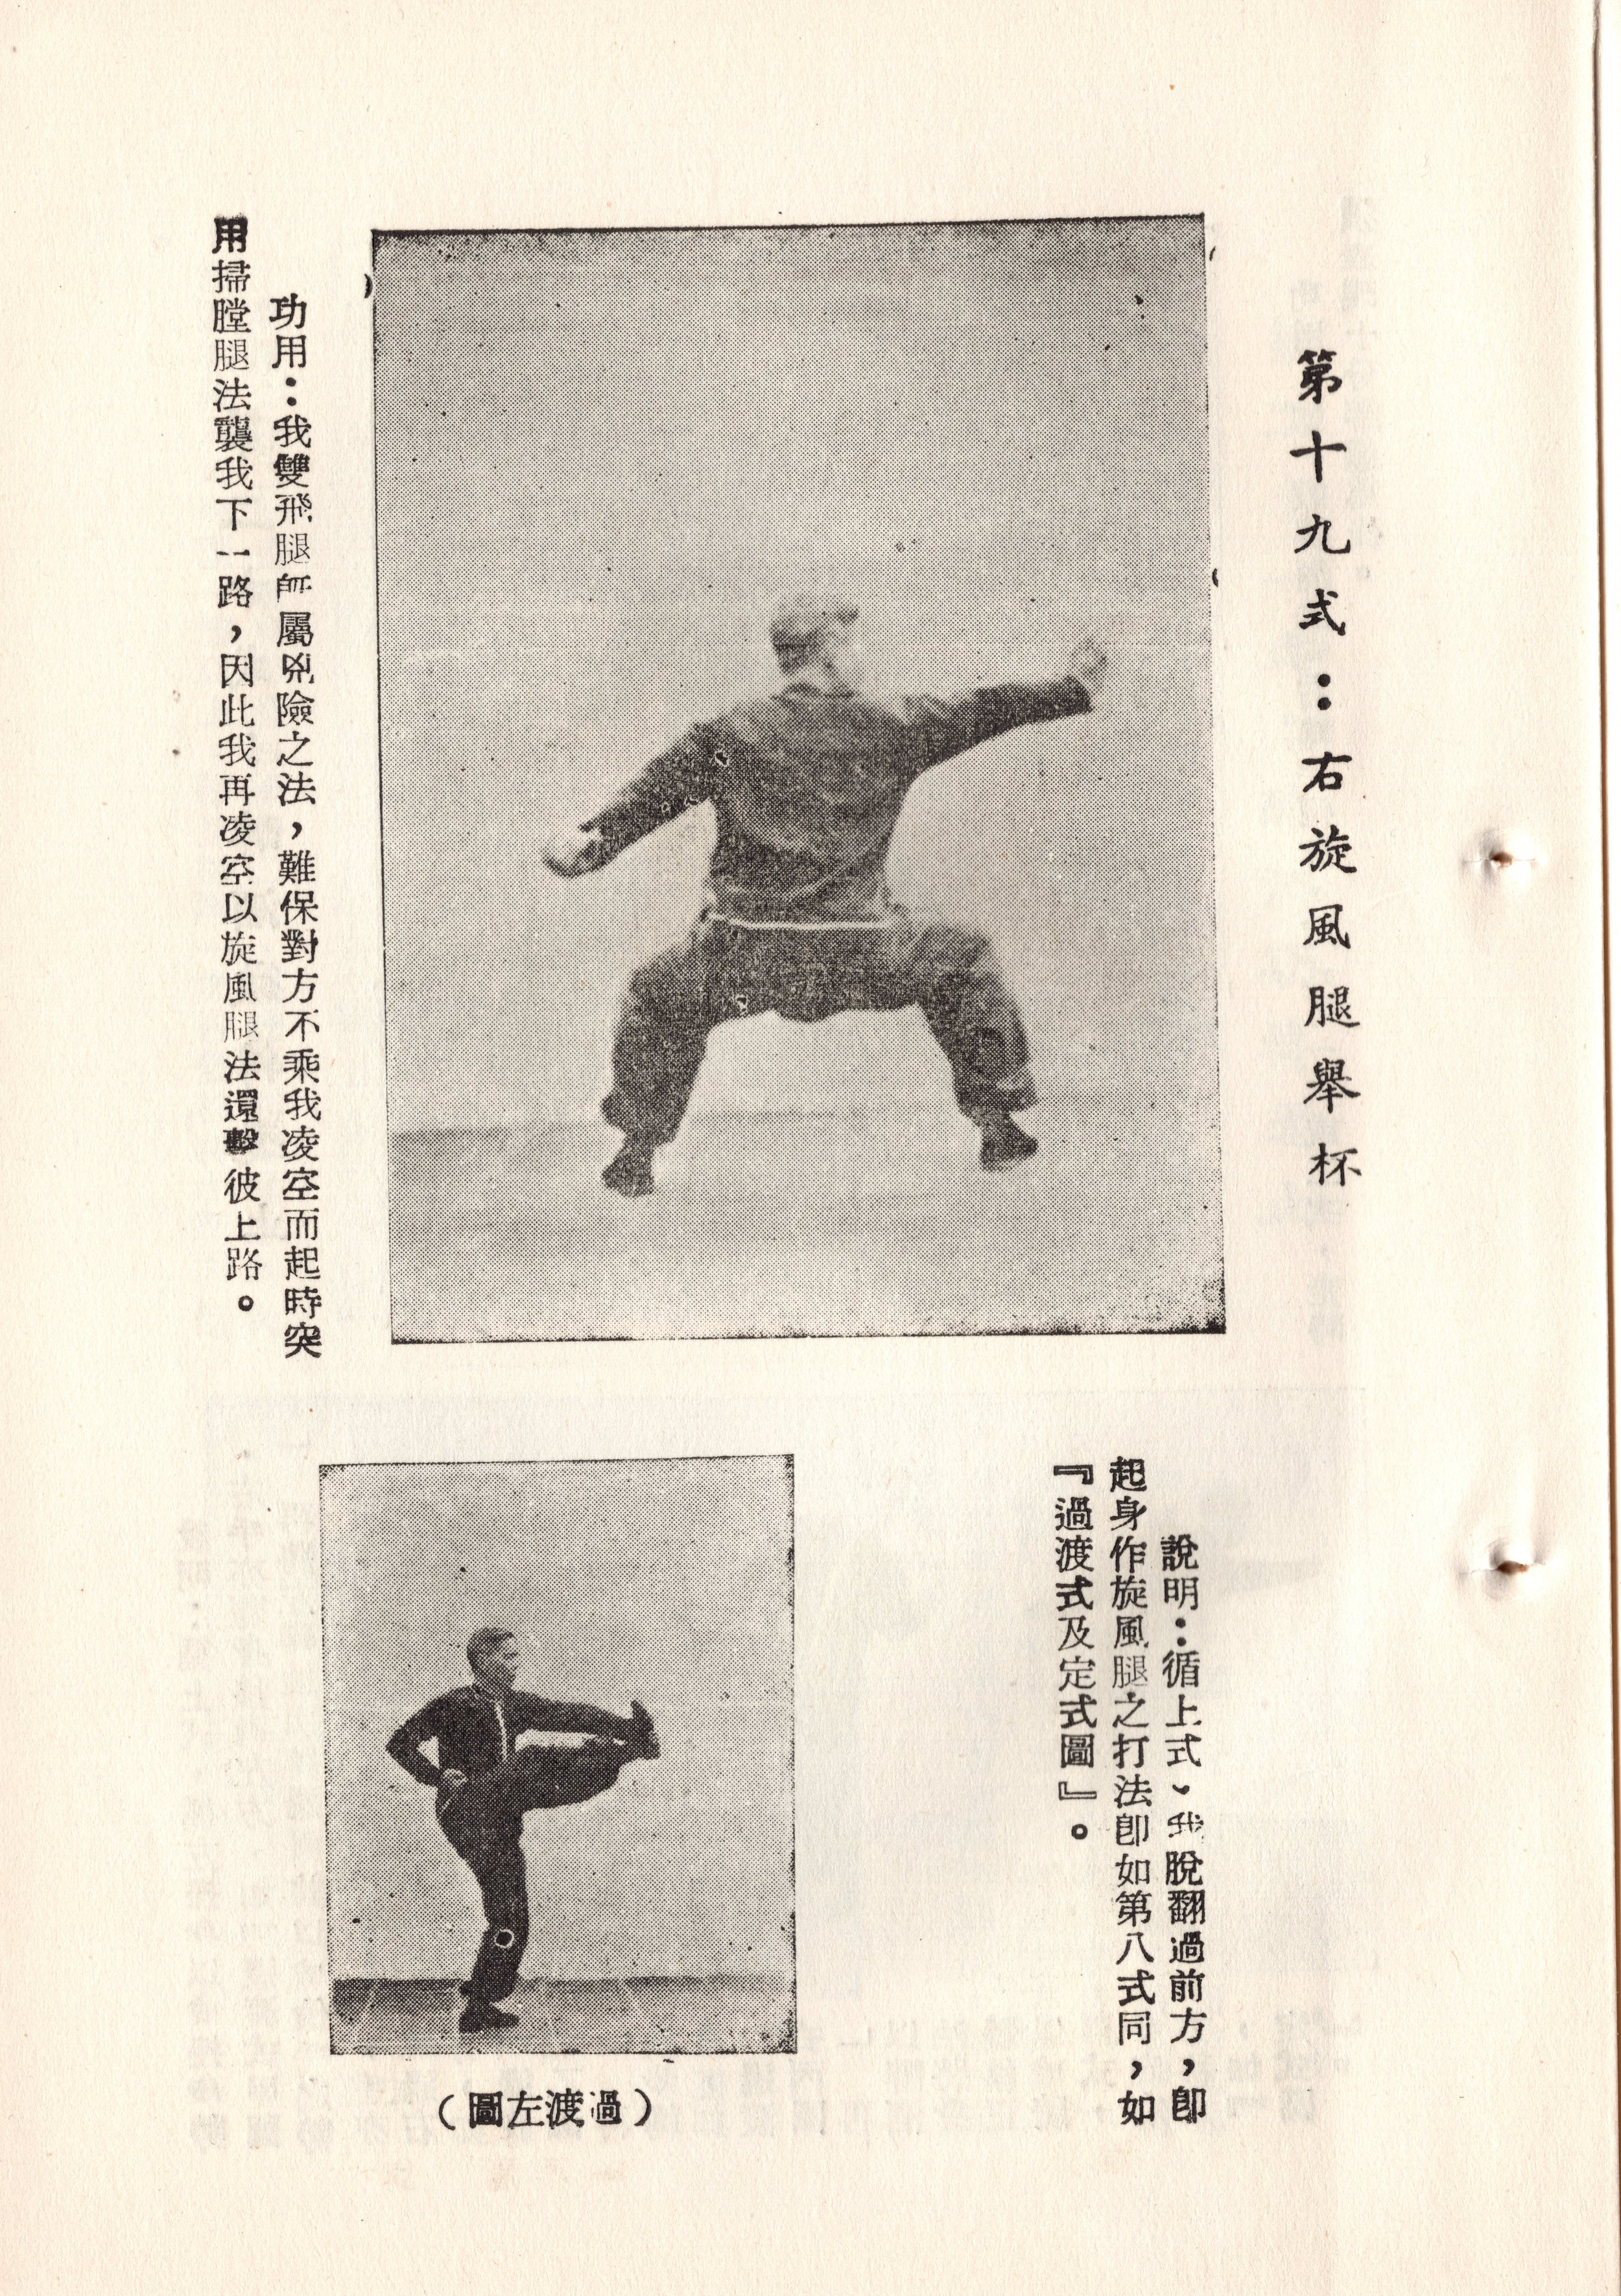 第十九式：右旋風腿舉杯
說明：循上式、我脫翻過前方，卽
起身作旋風腿之打法卽如第八式同，如
『過渡式及定式圖』。
（過渡左圖）
功用：我雙飛腿屬兇險之法，難保對方不乘我凌空而起時突
用掃膛腿法襲我下一路，因此我再凌空以旋風腿法還擊彼上路。